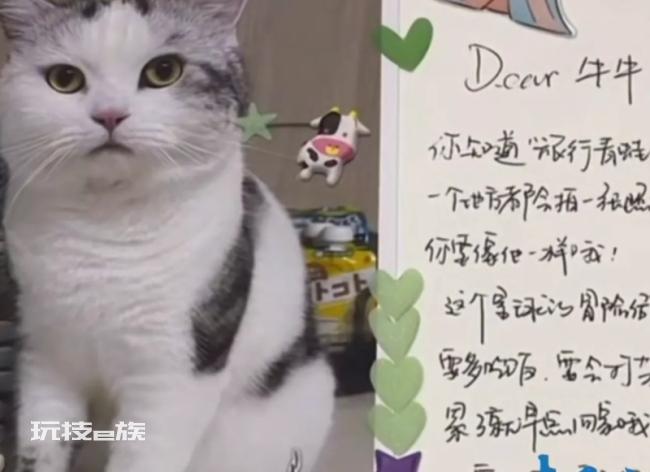 Dear 牛牛
你知道“旅行青蛙
一个地方都会拍一张照
你要像他一样哦！
这个星球的冒险结
要多吃饭，要会叮当
累了就早点回家哦
トコト
玩技e族